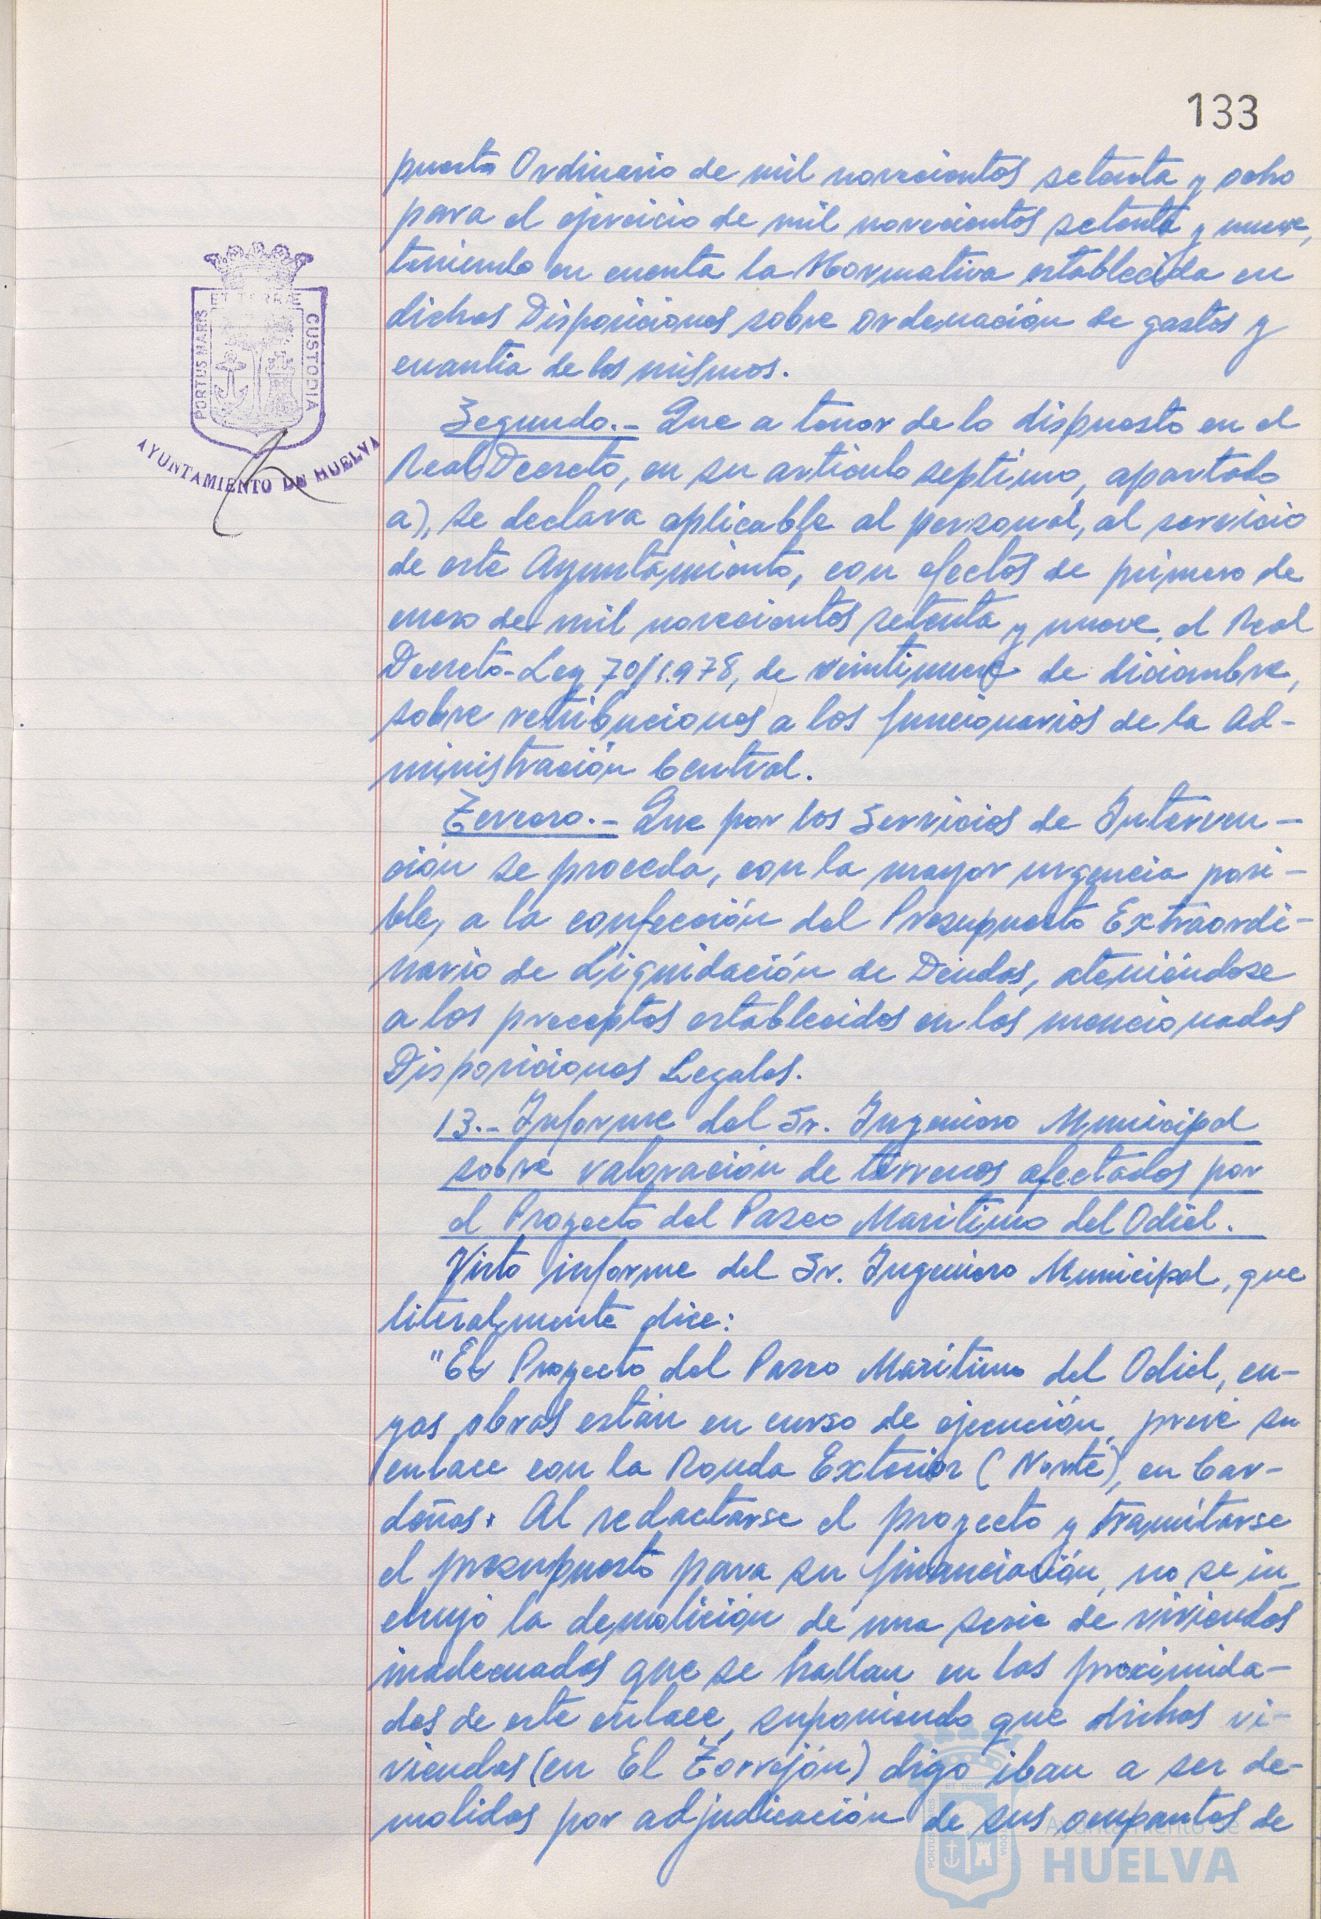 133
puesto Ordinario de mil novecientos setenta y ocho
para el ejercicio de mil novecientos setenta y nueve,
teniendo en cuenta la Normativa establecida en
dichas Disposiciones sobre ordenación de gastos y
cuantia de los mismos.
Segundo.- Que a tenor de lo dispuesto en el
Real Decreto, en su articulo septimo, apartado
a), se declara aplicable al personal, al servicio
de este Ayuntamiento, con efectos de primero de
enero de mil novecientos setenta y nueve, el Real
Decreto-Ley 70/1.978, de veintinueve de diciembre,
sobre retribuciones a los funcionarios de la Ad-
ministración Central.
Tercero.- Que por los Servicios de Interven-
ción se proceda, con la mayor urgencia posi-
ble, a la confección del Presupuesto Extraordi-
nario de Liquidación de Deudas, ateniéndose
a los preceptos establecidos en las mencionadas
Disposiciones Legales.
13.- Informe del Sr. Ingeniero Municipal
sobre valoración de terrenos afectados por
el Proyecto del Paseo Maritimo del Odiel.
Visto informe del Sr. Ingeniero Municipal, que
literalmente dice:
"El Proyecto del Paseo Maritimo del Odiel, cu-
yas obras están en curso de ejecución, prevé su
enlace con la Ronda Exterior (Norte), en Car-
deñas. Al redactarse el proyecto y tramitarse
el presupuesto para su financiación, no se in-
cluyó la demolición de una serie de viviendas
inadecuadas que se hallan en las proximida-
des de este enlace, suponiendo que dichas vi-
viendas (en El Torrejón) digo iban a ser de-
molidas por adjudicación de sus ocupantes de
PORTUS MARIS ET TERRAE CUSTODIA
AYUNTAMIENTO DE HUELVA
Ayuntamiento de
HUELVA